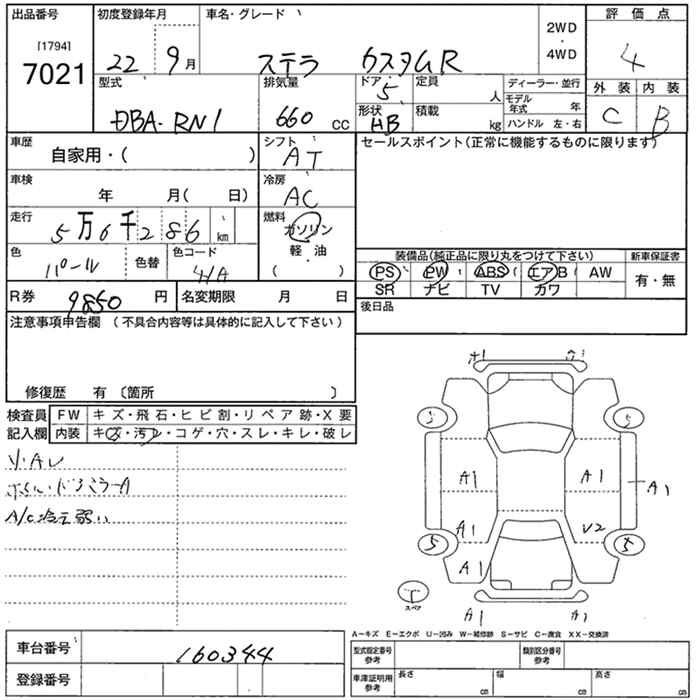 出品番号 初度登録年月 車名・グレード 評価点
[1794]
7021
22年 9月
ステラ カスタムR
2WD
・
4WD
4
型式 排気量 ドア 定員 ディーラー・並行 外装 内装
DBA-RN1
660 CC
5
人
モデル年式 年
形状 積載
HB kg
ハンドル 左・右
C B
車歴 自家用・( )
シフト AT
セールスポイント(正常に機能するものに限ります)
車検 年 月( 日)
冷房 AC
走行 5万6千286 km
燃料 ガソリン
軽・油
( )
色 パール 色替 色コード
装備品(純正品に限り丸をつけて下さい) 新車保証書
PS PW ABS エアB AW 有・無
SR ナビ TV カワ
R券 9850 円 名変期限 月 日
後日品
注意事項申告欄 (不具合内容等は具体的に記入して下さい)
修復歴 有 〔箇所 〕
検査員 FW キズ・飛石・ヒビ割・リペア跡・X要
記入欄 内装 キズ・汚れ・コゲ・穴・スレ・キレ・破レ
A/C冷え弱い
5 5
A1 A1 A1
A1 U2
5 A1 5
スペア
A1 A1
A-キズ E-エクボ U-凹み W-補修跡 S-サビ C-腐食 XX-交換済
車台番号 160344
型式指定番号 参考 類別区分番号 参考
登録番号
車庫証明用 参考 長さ cm 幅 cm 高さ cm